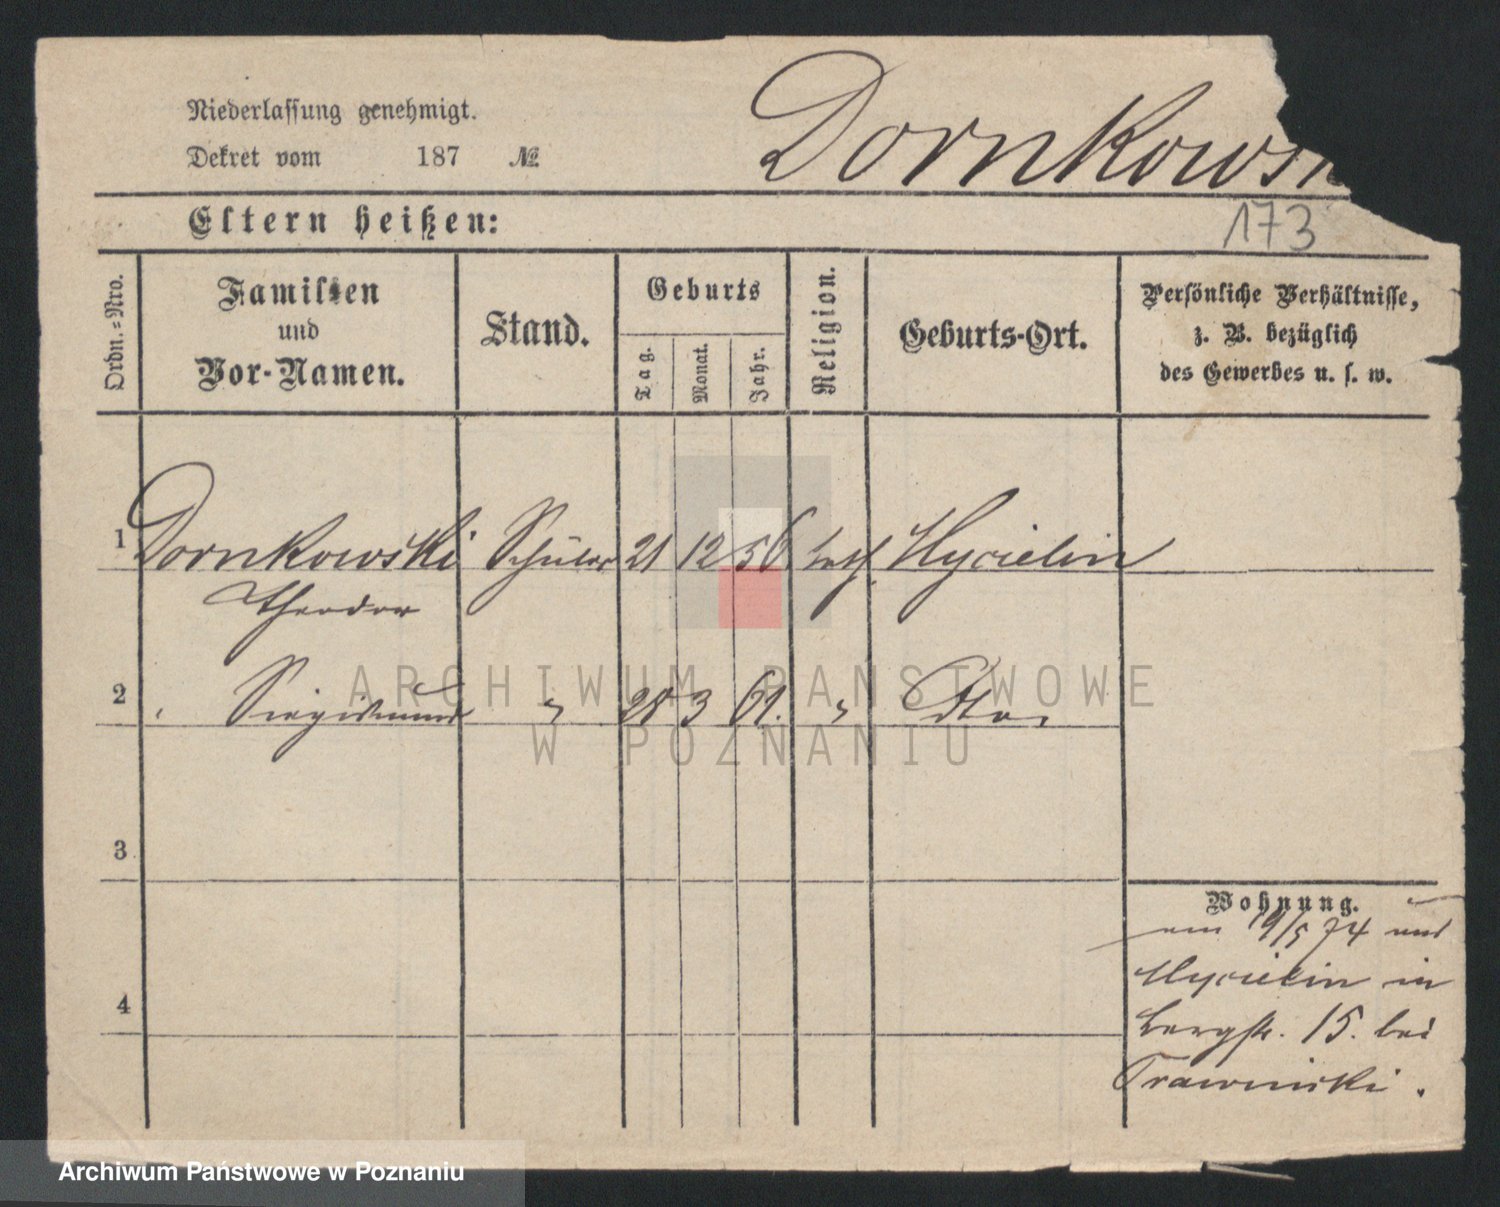 Niederlassung genehmigt.
Dekret vom 187 №
Dornkowsk
Eltern heißen:
173
Ordn.=Nro.
Familien
und
Vor-Namen.
Stand.
Geburts
Tag.
Monat.
Jahr.
Religion.
Geburts-Ort.
Persönliche Verhältnisse,
z. B. bezüglich
des Gewerbes u. s. w.
1 Dornkowski Schüler 21 12 56 kath. Mycielin
Theodor
2 Siegismund " 28 3 61. " Dto.
3
4
Wohnung.
am 19/5 74 aus
Mycielin in
Bergstr. 15. bei
Trawinski.
ARCHIWUM PAŃSTWOWE
W POZNANIU
Archiwum Państwowe w Poznaniu